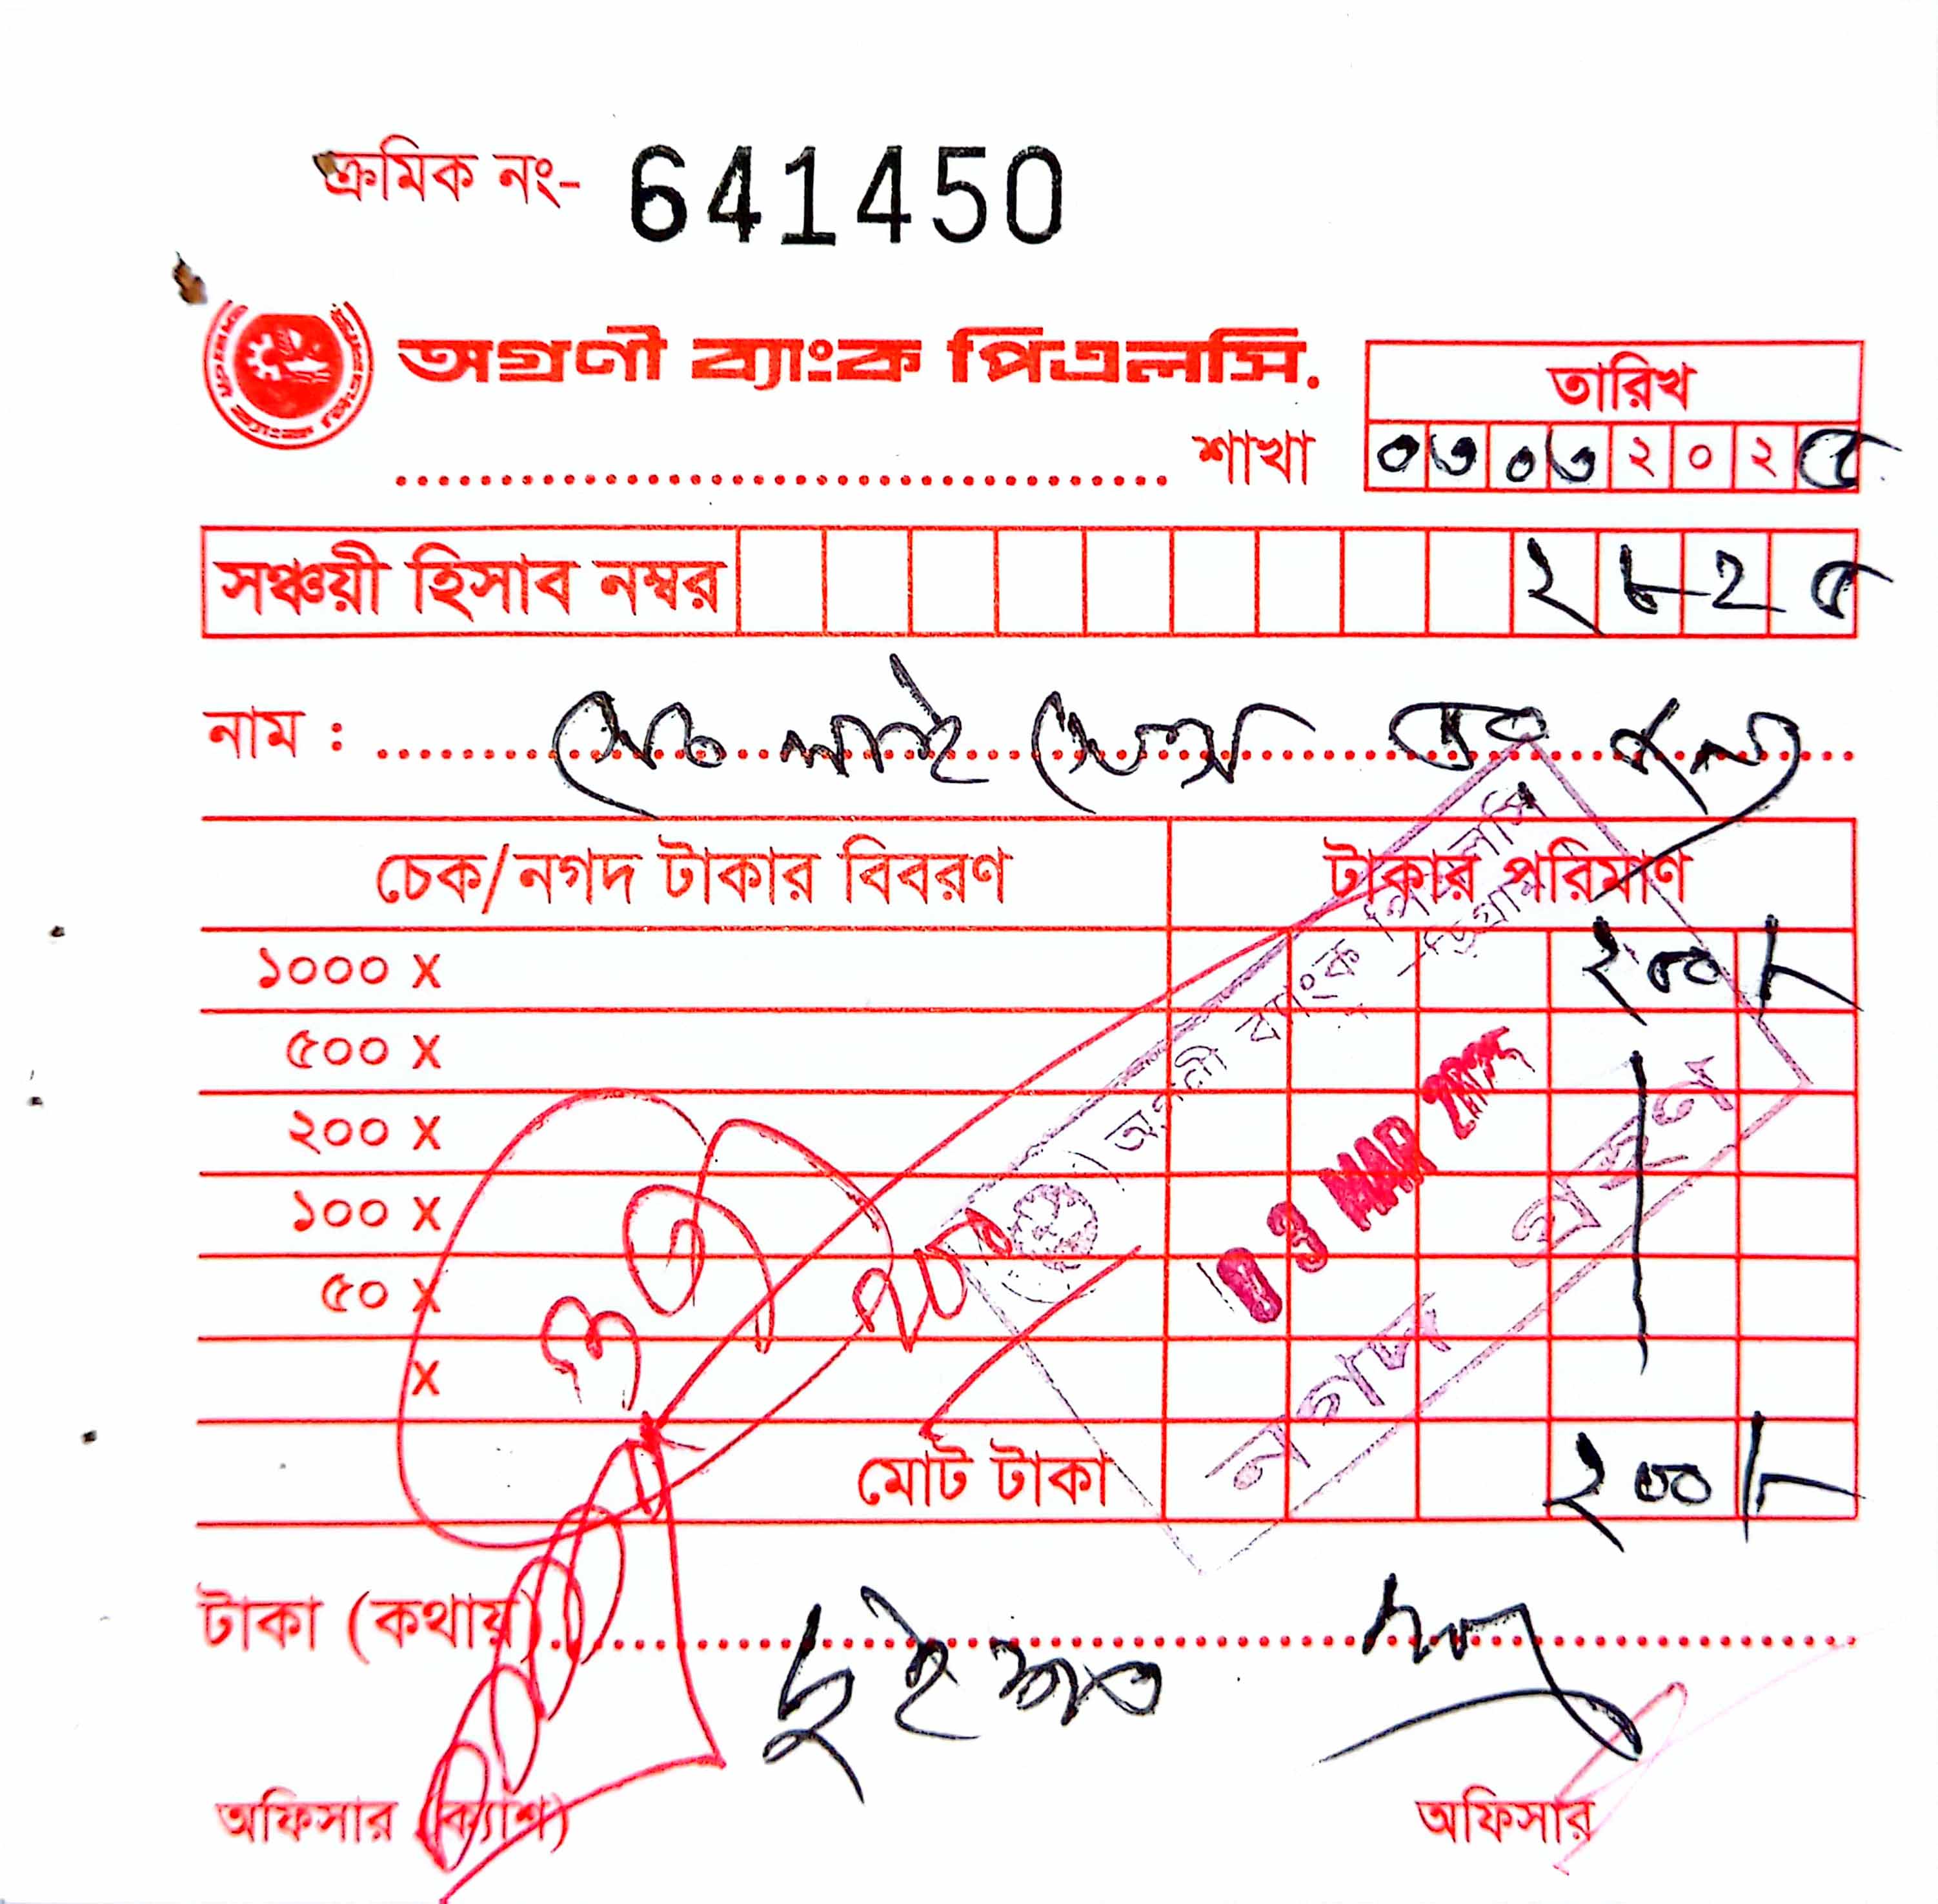 ক্রমিক নং- 641450
অগ্রণী ব্যাংক পিএলসি.
তারিখ
শাখা ০৩০৩২০২৫
সঞ্চয়ী হিসাব নম্বর ২৮২৫
নাম :
চেক/নগদ টাকার বিবরণ টাকার পরিমাণ
১০০০ X ২০০/-
৫০০ X
২০০ X
১০০ X
৫০ X
X
মোট টাকা ২০০/-
অগ্রণী ব্যাংক পিএলসি
03 MAR
নগদ গ্রহণ
টাকা (কথায়) দুই শত
অফিসার (ক্যাশ) অফিসার